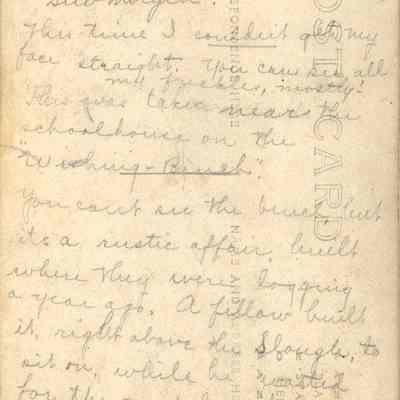 This time I couldn't get my
face straight. You can see all
my freckles, mostly!
This was taken near the
schoolhouse on the
"Wishing-Bench".
You can't see the bench, but
its a rustic affair, built
where they were logging
a year ago. A fellow built
it, right above the Slough, to
sit on, while he waited
for the
POST CARD